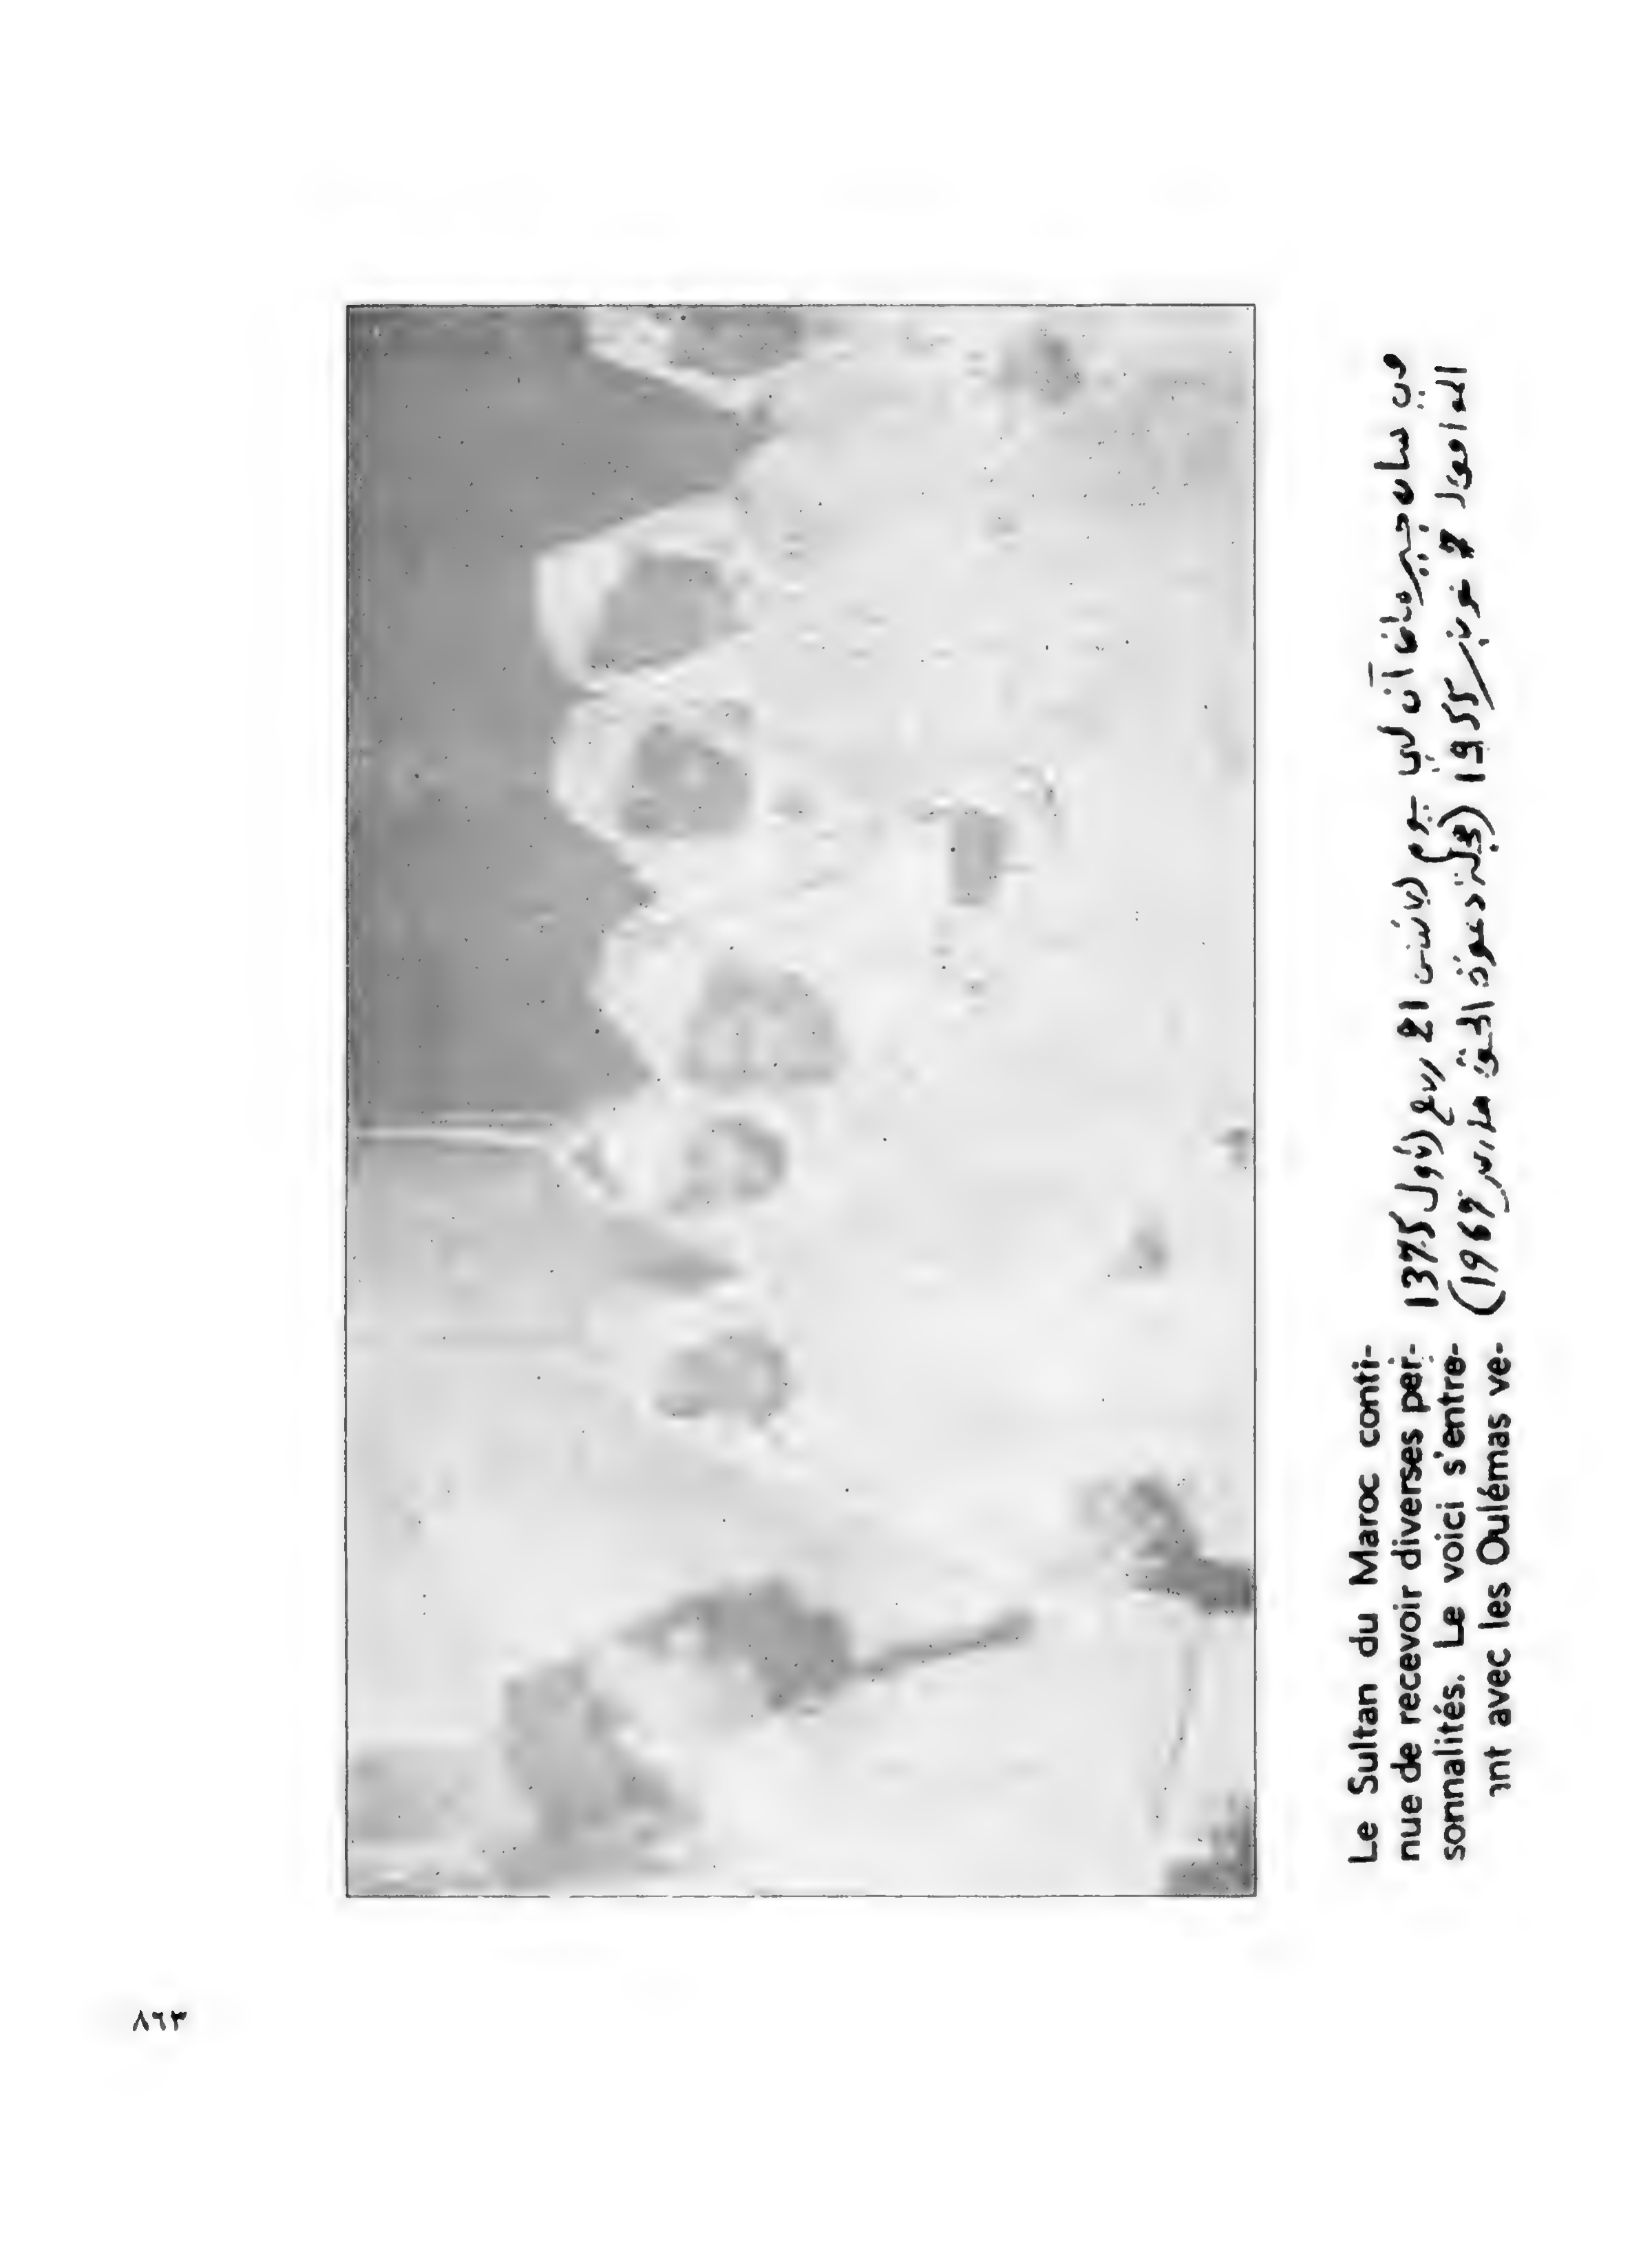 Le Sultan du Maroc conti-
nue de recevoir diverses per-
sonnalités. Le voici s'entre-
ant avec les Oulémas ve-
من سان جيرمان آن لي يوم الاثنين 21 ربيع الأول 1375
الموافق لـ 7 نونبر 1955 (مجلة دعوة الحق مارس 1969)
٨٦٣